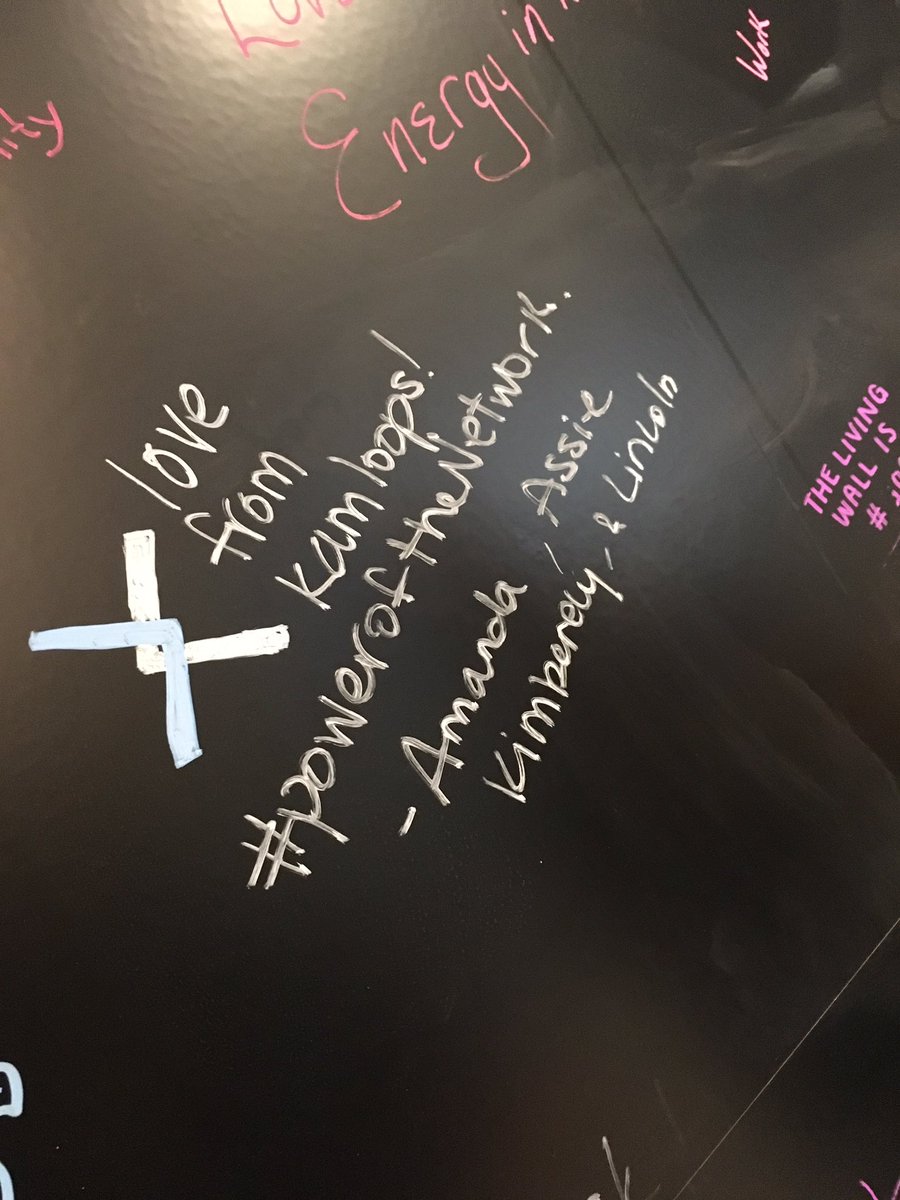 Energy in
Work
love
from
Kamloops!
#poweroftheNetwork.
- Amanda - Assie
Kimberely - & Lincoln
THE LIVING
WALL IS
#